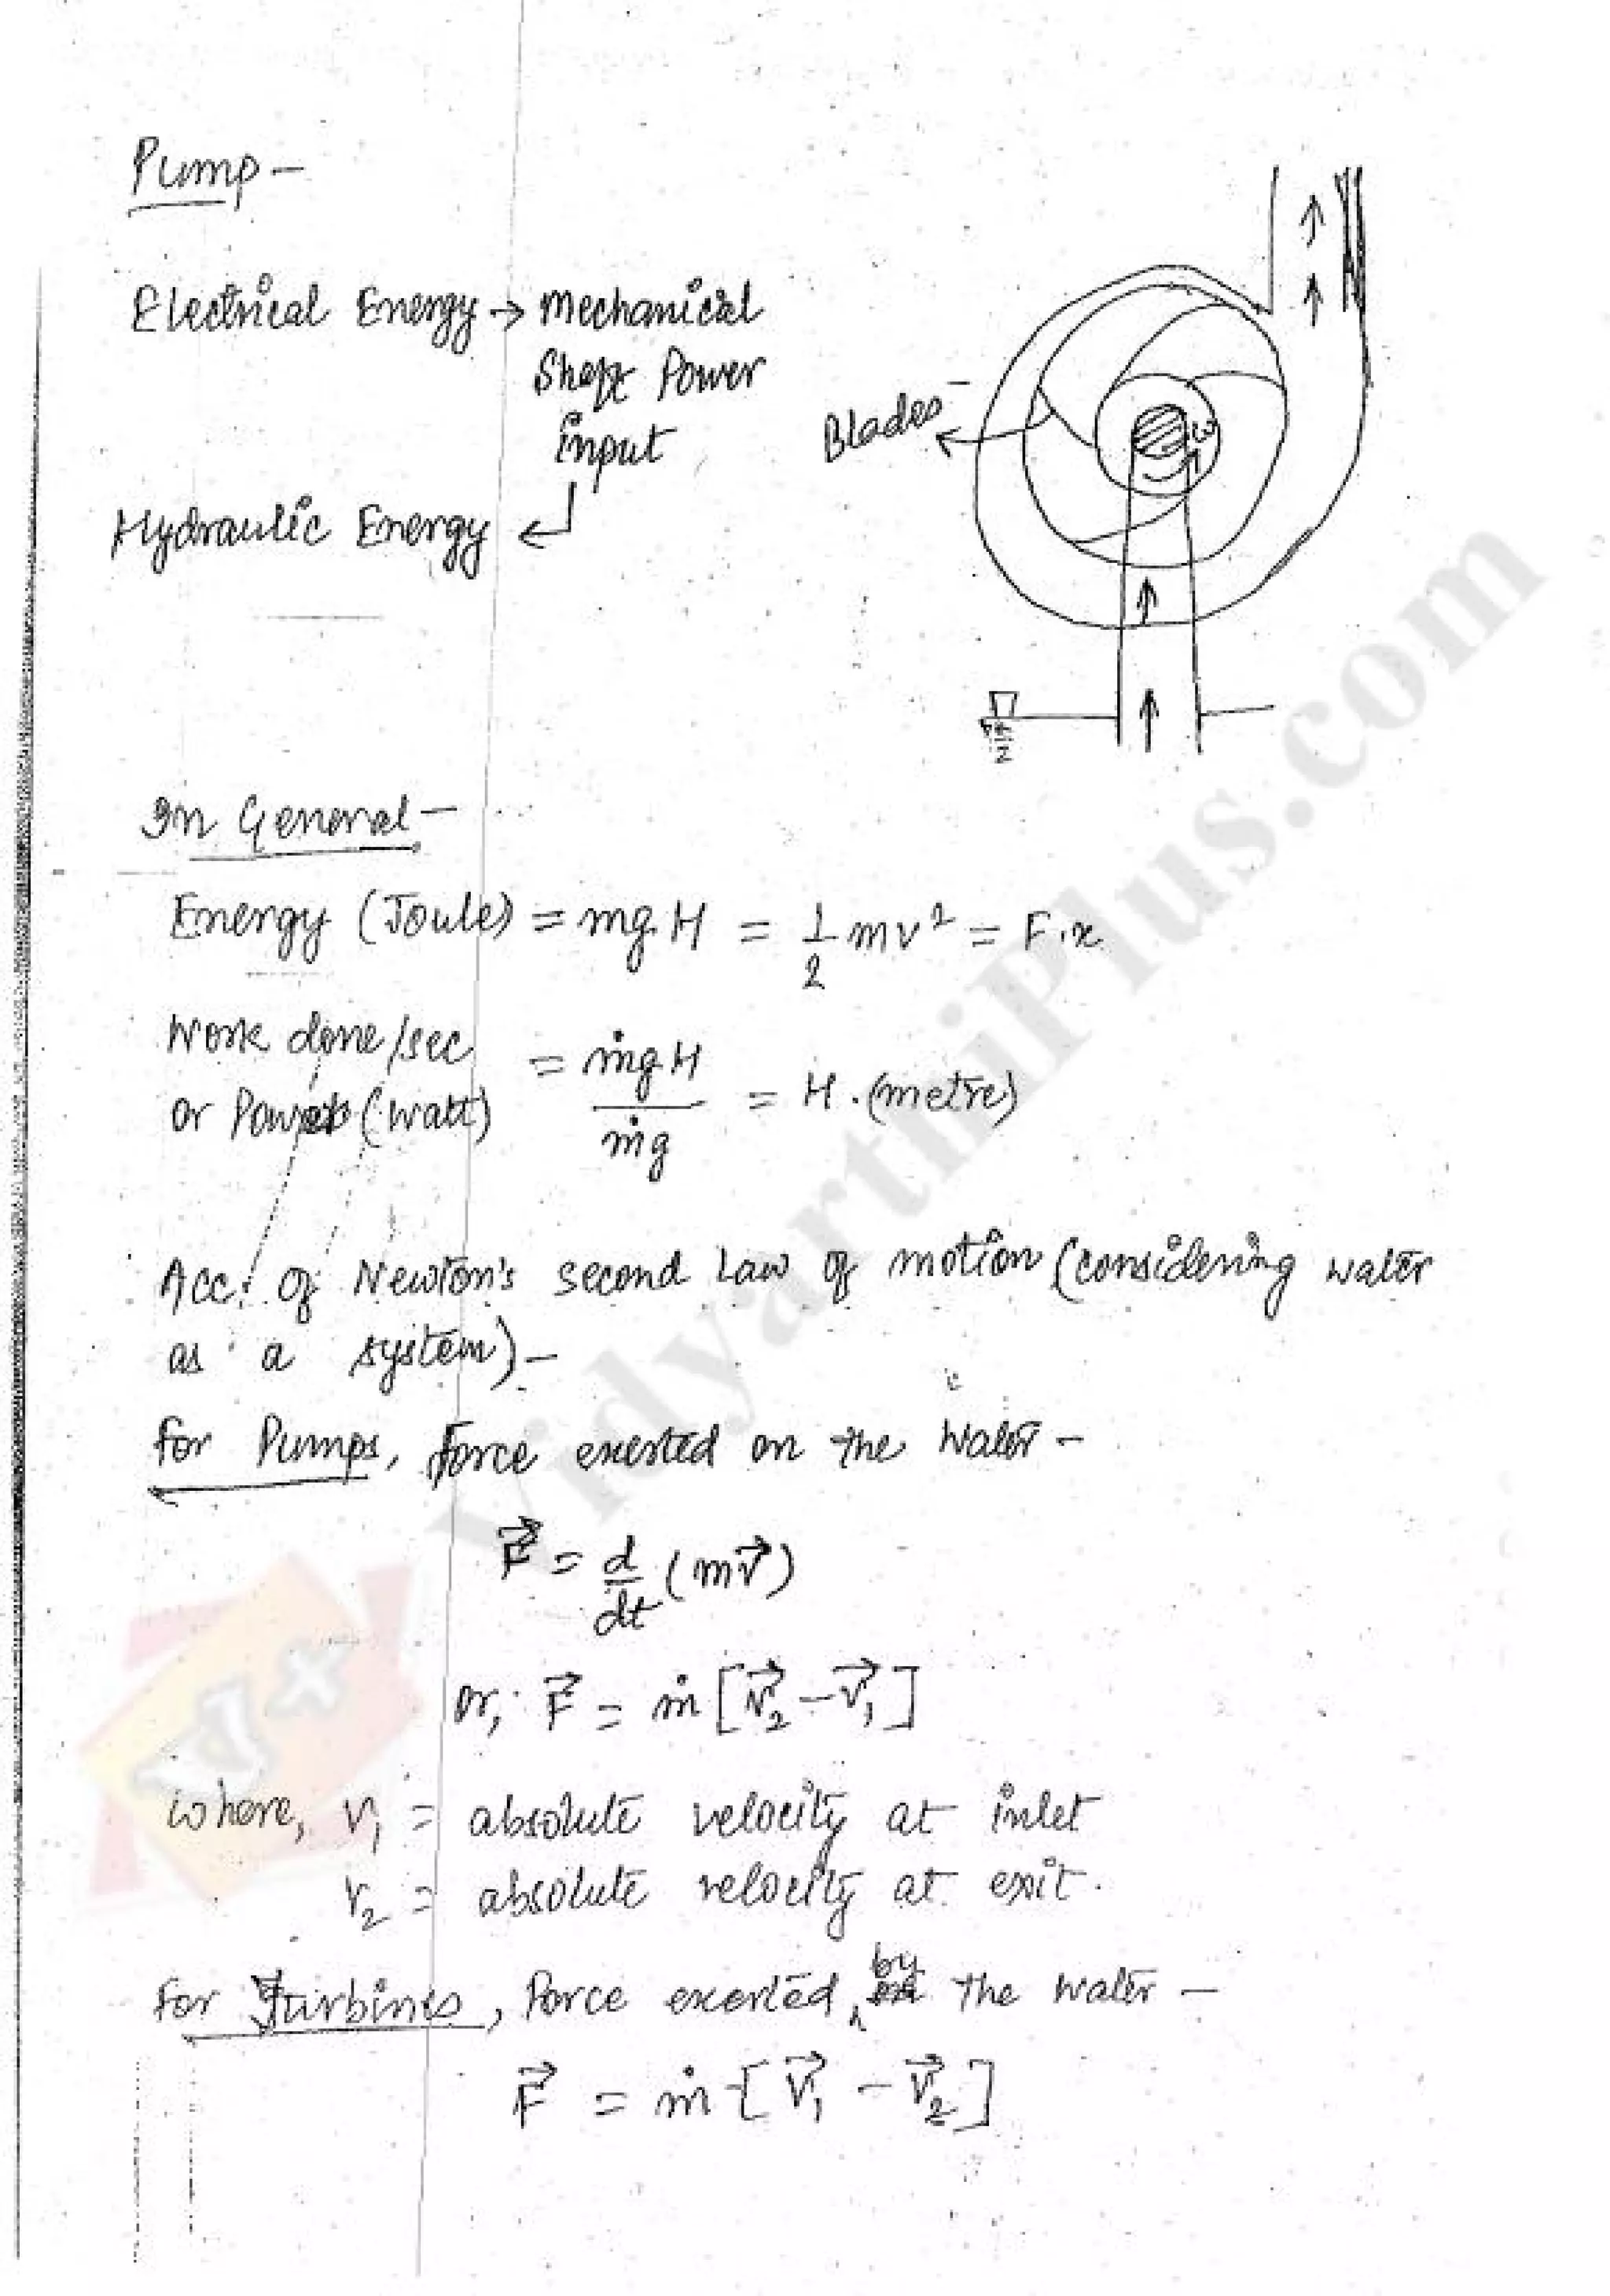 Pump -
Electrical Energy → Mechanical
Shaft Power
input
Hydraulic Energy ↵
Blades
ω
In General -
Energy (Joule) = mgH = 1/2 mv² = F.x
Work done/sec
or Power (watt) = ṁgH/ṁg = H. (metre)
Acc. of Newton's second Law of motion (considering water
as a system) -
For Pumps, force exerted on the water -
F⃗ = d/dt (mv⃗)
or, F⃗ = ṁ [V⃗₂ - V⃗₁]
where, V₁ = absolute velocity at inlet
V₂ = absolute velocity at exit.
For Turbines, Force exerted by the water -
F⃗ = ṁ [V⃗₁ - V⃗₂]
VidyarthiPlus.com
V+